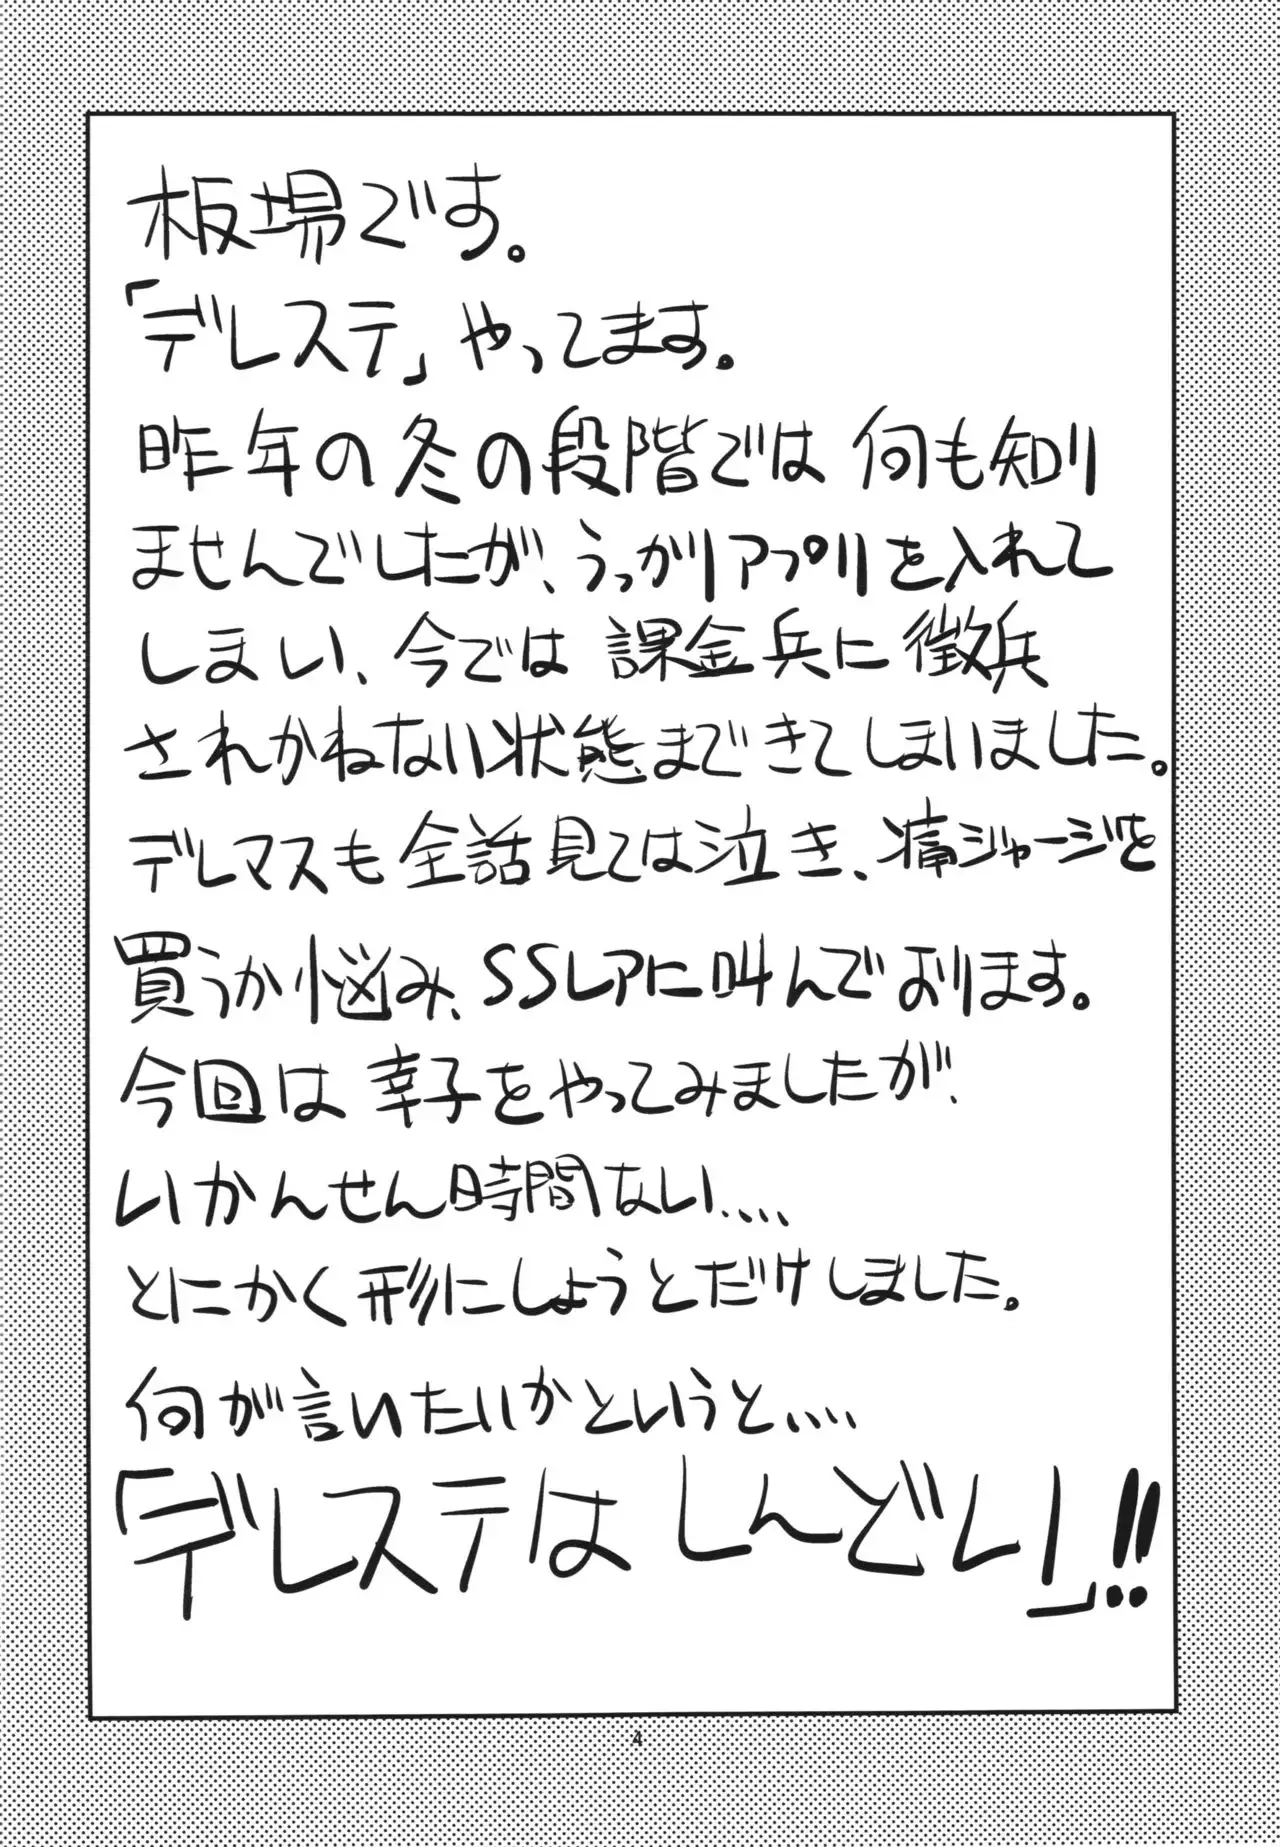 板場です。
「デレステ」やってます。
昨年の冬の段階では何も知り
ませんでしたが、うっかりアプリを入れて
しまい、今では課金兵に徴兵
されかねない状態まできてしまいました。
デレマスも全話見ては泣き、痛ジャージを
買うか悩み、SSレアに叫んでおります。
今回は幸子をやってみましたが、
いかんせん時間ない、、、、
とにかく形にしようとだけしました。
何が言いたいかというと、、、、
「デレステはしんどい」!!
4